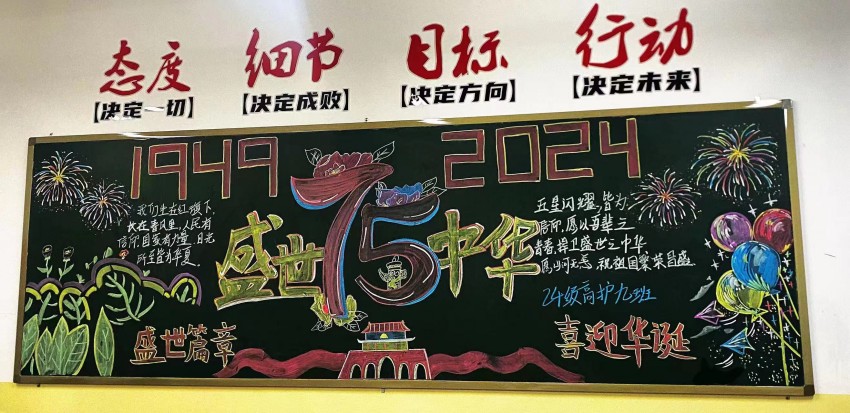 态度
【决定一切】
细节
【决定成败】
目标
【决定方向】
行动
【决定未来】
1949
2024
75
盛世
中华
我们生在红旗下,
长在春风里,人民有
信仰国家有力量 目光
所至皆为华夏
五星闪耀,皆为
信仰,愿以吾辈之
青春,捍卫盛世之中华
愿山河无恙 祝祖国繁荣昌盛
24级高护九班
盛世篇章
喜迎华诞